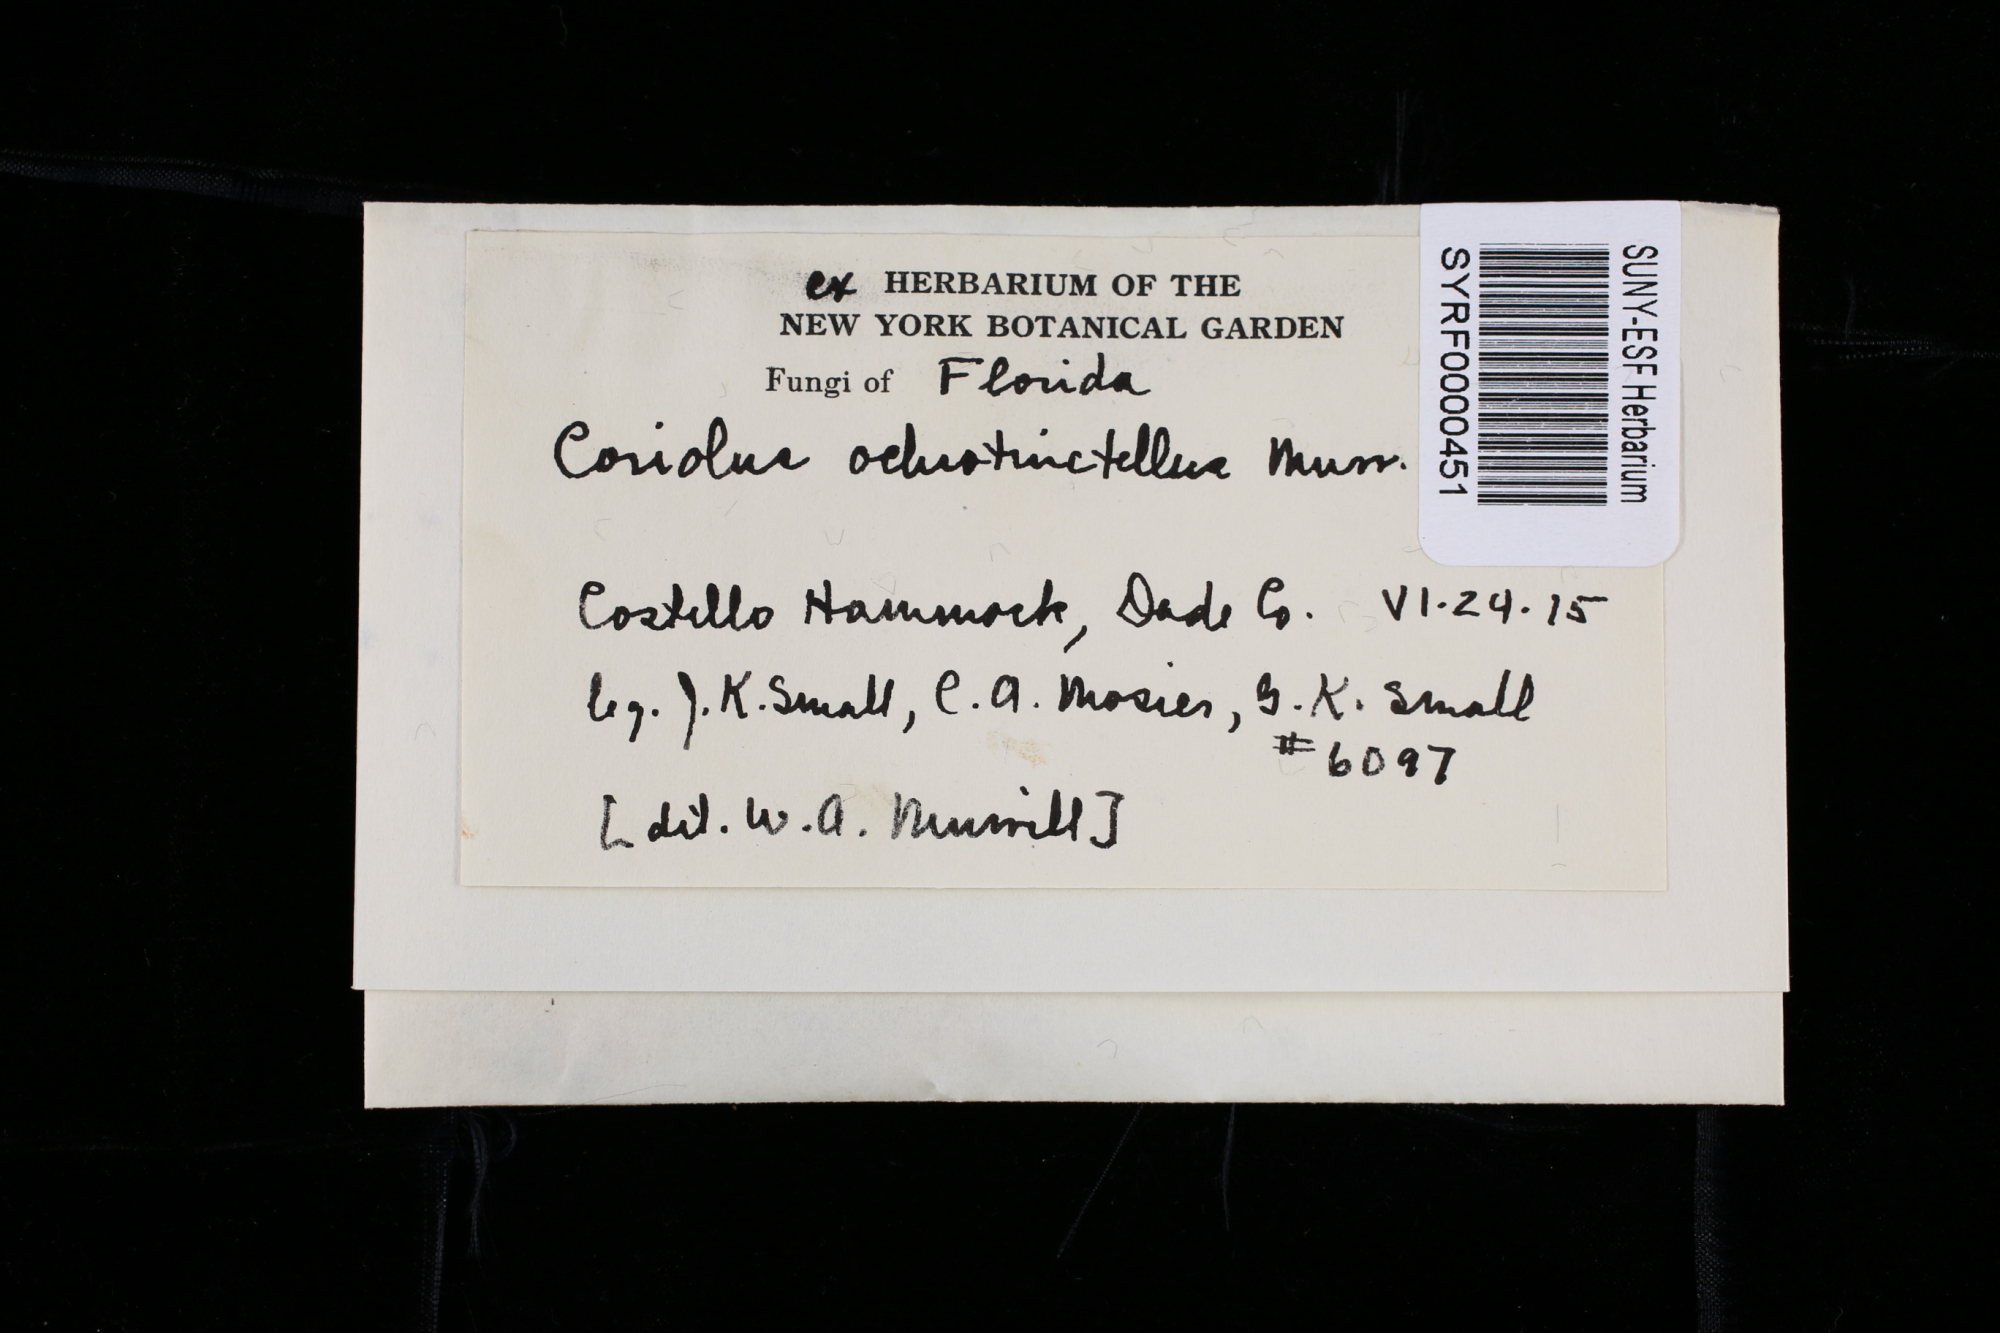 ex HERBARIUM OF THE
NEW YORK BOTANICAL GARDEN
Fungi of Florida
Coriolus ochrotinctellus Murr.
Costello Hammock, Dade Co. VI.24.15
leg. J.K. Small, C.A. Mosier, G.K. Small
#6097
[det. W.A. Murrill]
SUNY-ESF Herbarium
SYRF0000451